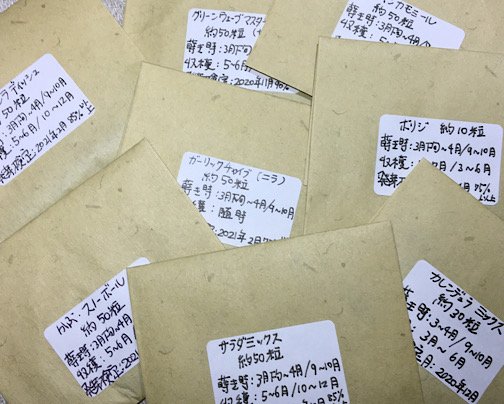 グリーンウェーブマスター
約50粒
蒔き時:3月下旬~4月
収穫:5~6月
2020年11月 90%
カモミール
約50粒
蒔き時:3月下旬~4月
収穫:5~6月
ラディッシュ
約50粒
3月下旬~4月/9~10月
5~6月/10~12月
2021年2月 85%以上
ボリジ 約10粒
蒔き時:3月下旬~4月/9~10月
3~6月
85%
以上
ガーリックチャイブ(ニラ)
約50粒
蒔き時:3月下旬~4月/9~10月
収穫:随時
2021年2月
スノーボール
約50粒
蒔き時:3月下旬~4月
収穫:5~6月
2021
カレンデュラ ミックス
約30粒
蒔き時:3~4月/9~10月
3月~6月
2020年10月
サラダミックス
約50粒
蒔き時:3月下旬~4月/9~10月
収穫:5~6月/10~12月
85%